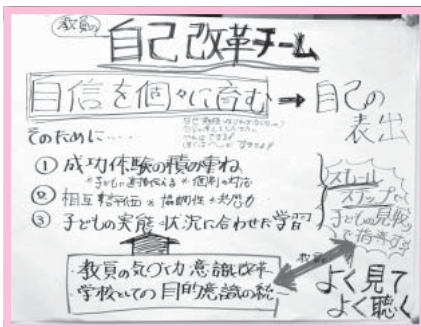 教員の
自己改革チーム
自信を個々に育む ➡ 自己の表出
そのために‥‥
① 成功体験の積み重ね
② 相互評価 * 協働性
③ 子どもの実態・状況に合わせた学習
スモール
ステップで
子どもの見取り
で指導
教員の気づく力 意識改革
学校としての目的意識の統一
教員
よく見て
よく聴く